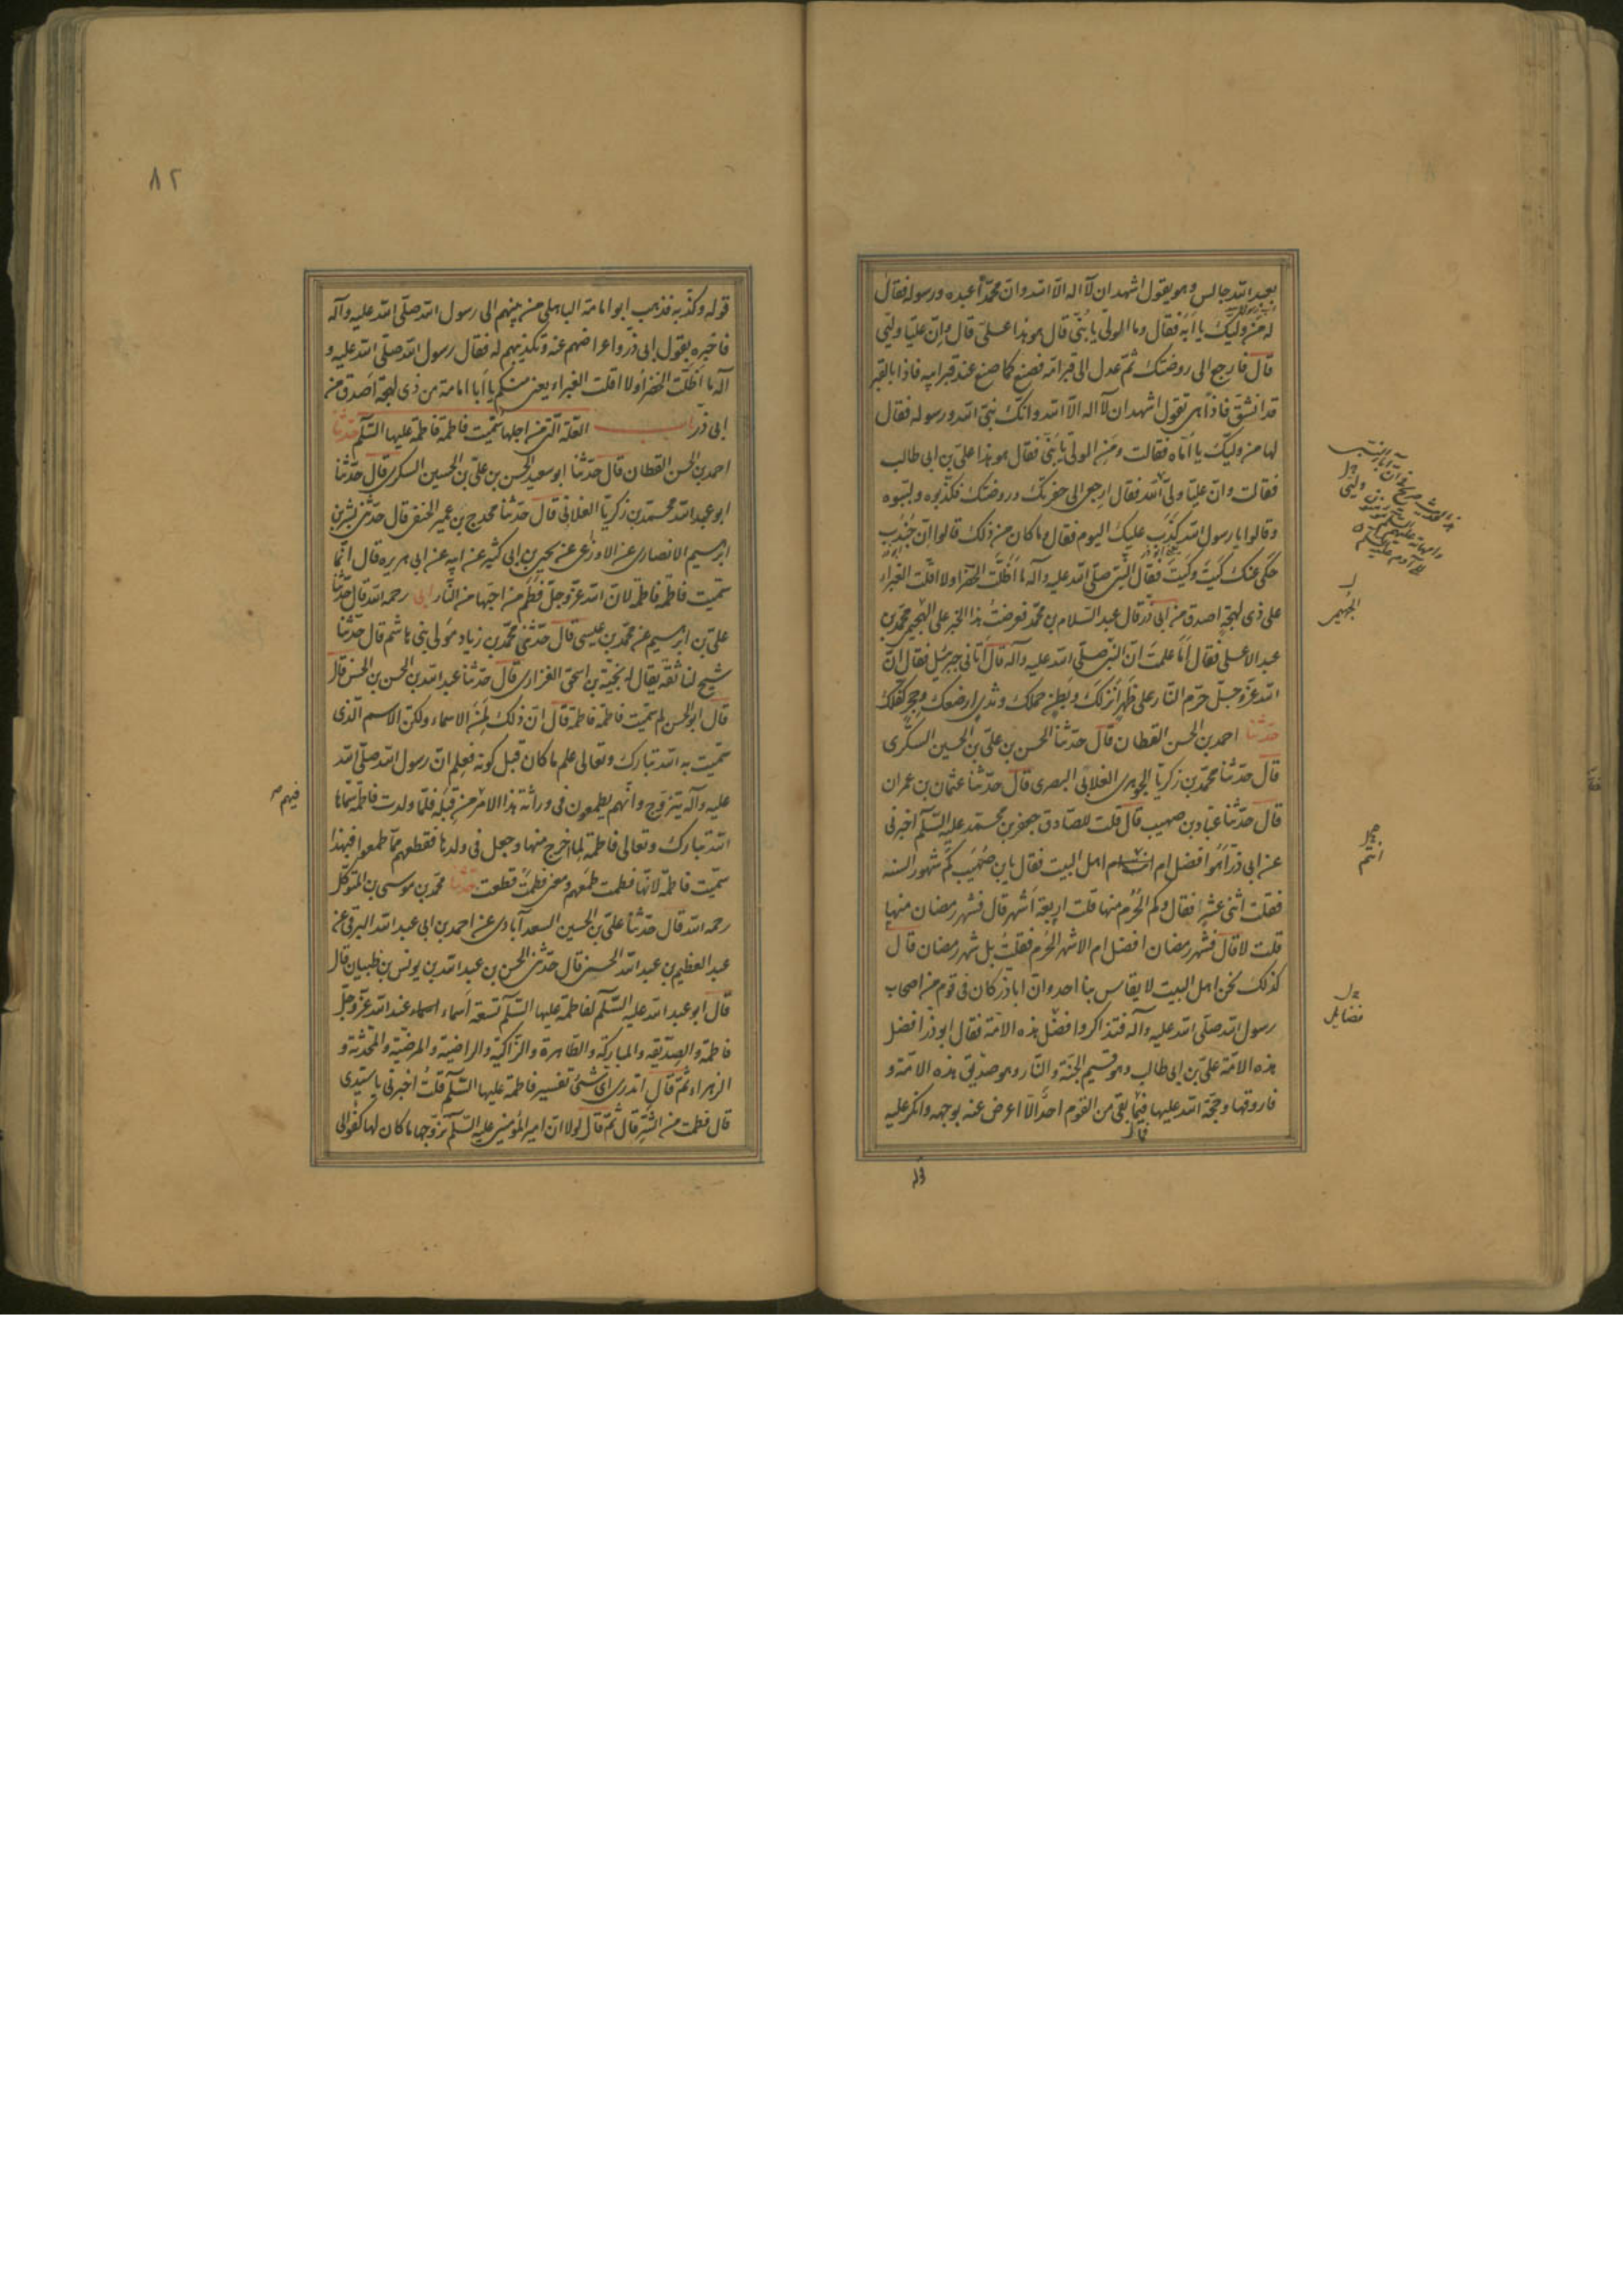 بعبد الله جالس وهو يقول اشهد ان لا اله الا الله وان محمدا عبده ورسوله فقال
له من وليك يا ابه فقال وما الولى يا بنى قال هو هذا على قال وان عليا وليى
قال فارجع الى روضتك ثم عدل الى قبر امه فصنع كما صنع عند قبر ابيه فاذا بالقبر
قد انشق فاذا هى تقول اشهد ان لا اله الا الله وانك نبى الله ورسوله فقال
لها من وليك يا اماه فقالت ومن الولى يا بنى فقال هو هذا على بن ابى طالب
فقالت وان عليا ولى الله فقال ارجعى الى حفرتك وروضتك فكذبوه ولببوه
وقالوا يا رسول الله كذب عليك اليوم فقال وما كان من ذلك قالوا ان جندب
حكى عنك كيت وكيت فقال النبى صلى الله عليه وآله ما اظلت الخضراء ولا اقلت الغبراء
على ذى لهجة اصدق من ابى ذر قال عبد السلام بن محمد فعرضت هذا الخبر على الهجيمى محمد بن
عبد الاعلى فقال اما علمت ان النبى صلى الله عليه وآله قال اتانى جبرئيل فقال ان
الله عز وجل حرم النار على ظهر انزلك وبطن حملك وثدى ارضعك وحجر كفلك
حدثنا احمد بن الحسن القطان قال حدثنا الحسن بن على بن الحسين السكرى
قال حدثنا محمد بن زكريا الجوهرى الغلابى البصرى قال حدثنا عثمان بن عمران
قال حدثنا عباد بن صهيب قال قلت للصادق جعفر بن محمد عليه السلام اخبرنى
عن ابى ذر اهو افضل ام انتم اهل البيت فقال يا بن صهيب كم شهور السنه
فقلت اثنى عشر فقال وكم الحرم منها قلت اربعة اشهر قال فشهر رمضان منها
قلت لا قال فشهر رمضان افضل ام الاشهر الحرم فقلت بل شهر رمضان قال
كذلك نحن اهل البيت لا يقاس بنا احد وان اباذر كان فى قوم من اصحاب
رسول الله صلى الله عليه وآله فتذاكروا فضل هذه الامة فقال ابو ذر افضل
هذه الامة على بن ابى طالب وهو قسيم الجنة والنار وهو صديق هذه الامة و
فاروقها وحجة الله عليها فما بقى من القوم احد الا اعرض عنه بوجهه وانكر عليه
قوله
فضايل
٨٢
قوله وكذبه فذهب ابو امامة الباهلى من بينهم الى رسول الله صلى الله عليه وآله
فاخبره بقول ابى ذر واعراضهم عنه وتكذيبهم له فقال رسول الله صلى الله عليه و
آله ما اظلت الخضراء ولا اقلت الغبراء يعنى منكم يا ابا امامة من ذى لهجة اصدق من
ابى ذر باب العلة التى من اجلها سميت فاطمة فاطمة عليها السلم حدثنا
احمد بن الحسن القطان قال حدثنا ابو سعيد الحسن بن على بن الحسين السكرى قال حدثنا
ابو عبد الله محمد بن زكريا الغلابى قال حدثنا مخدج بن عمير الحنفى قال حدثنى بشر بن
ابرهيم الانصارى عن الاوزاعى عن يحيى بن ابى كثير عن ابيه عن ابى هريره قال انما
سميت فاطمة فاطمة لان الله عز وجل فطم من احبها من النار ابى رحمه الله قال حدثنا
على بن ابرهيم عن محمد بن عيسى قال حدثنى محمد بن زياد مولى بنى هاشم قال حدثنا
شيخ لنا ثقة يقال له نجية بن اسحق الفزارى قال حدثنا عبد الله بن الحسن بن الحسن قال
قال ابو الحسن لم سميت فاطمة فاطمة قال ان ذلك لمن الاسماء ولكن الاسم الذى
سميت به الله تبارك وتعالى علم ما كان قبل كونه فعلم ان رسول الله صلى الله
عليه وآله يتزوج وانهم يطمعون فى وراثة هذا الامر من قبله فلما ولدت فاطمة سماها
الله تبارك وتعالى فاطمة لما اخرج منها وجعل فى ولدها فقطعهم مما طمعوا فبهذا
سميت فاطمة لانها فطمت طمعهم ومعنى فطمت قطعت حدثنا محمد بن موسى بن المتوكل
رحمه الله قال حدثنا على بن الحسين السعدآبادى عن احمد بن ابى عبد الله البرقى عن
عبد العظيم بن عبد الله الحسنى قال حدثنى الحسن بن عبد الله بن يونس بن ظبيان قال
قال ابو عبد الله عليه السلم لفاطمة عليها السلم تسعة اسماء عند الله عز وجل
فاطمة والصديقة والمباركة والطاهرة والزاكية والراضية والمرضية والمحدثة و
الزهراء ثم قال اتدرى اى شئ تفسير فاطمة عليها السلم قلت اخبرنى يا سيدى
قال فطمت من الشر قال ثم قال لولا ان امير المؤمنين عليه السلم تزوجها ما كان لها كفو الى
فيهم